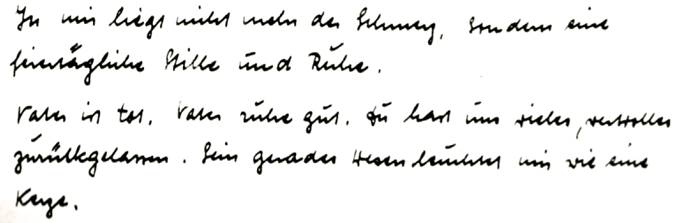 In mir liegt nicht mehr der Schmerz, sondern eine
feiertägliche Stille und Ruhe.
Vater ist tot. Vater ruhe gut. Du hast uns vieles, wertvolles
zurückgelassen. Dein gerades Wesen leuchtet mir wie eine
Kerze.